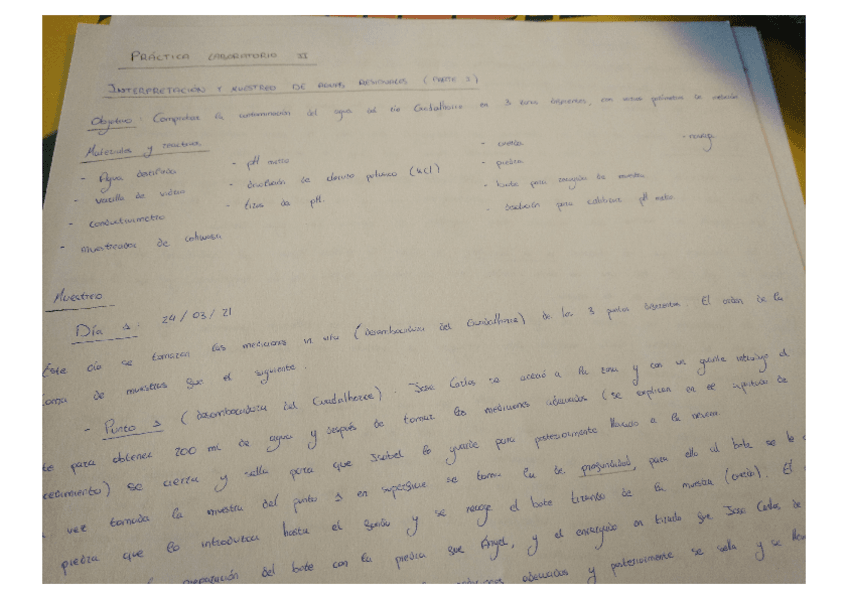 PRÁCTICA LABORATORIO II
INTERPRETACIÓN Y MUESTREO DE AGUAS RESIDUALES (PARTE 1)
Objetivo: Comprobar la contaminación del agua del río Guadalhorce en 3 zonas diferentes, con varios parámetros de medición
Materiales y reactivos
- Agua destilada - pH metro - cuerda - nevera
- varilla de vidrio - disolución de cloruro potásico (KCl) - piedra
- conductivímetro - tiras de pH. - bote para recogida de muestra
- muestreador de columna - disolución para calibrar pH metro
Muestreo
Día 1: 24/03/21
Este día se tomaron las mediciones in situ (desembocadura del Guadalhorce) de los 3 puntos diferentes. El orden de la
toma de muestras fue el siguiente.
- Punto 1 (desembocadura del Guadalhorce). Jose Carlos se acercó a la zona y con un guante introdujo el
para obtener 200 mL de agua y después de tomar las mediciones adecuadas (se explican en el apartado de
se cierra y sella para que Isabel lo guarde para posteriormente llevado a la nevera.
vez tomada la muestra del punto 1 en superficie se toma la de profundidad, para ello al bote se le
piedra que lo introduzca hasta el fondo y se recoge el bote tirando de la muestra (cuerda). El
preparación del bote con la piedra fue Ángel, y el encargado en tirarla fue Jose Carlos, de
adecuados y posteriormente se sella y se